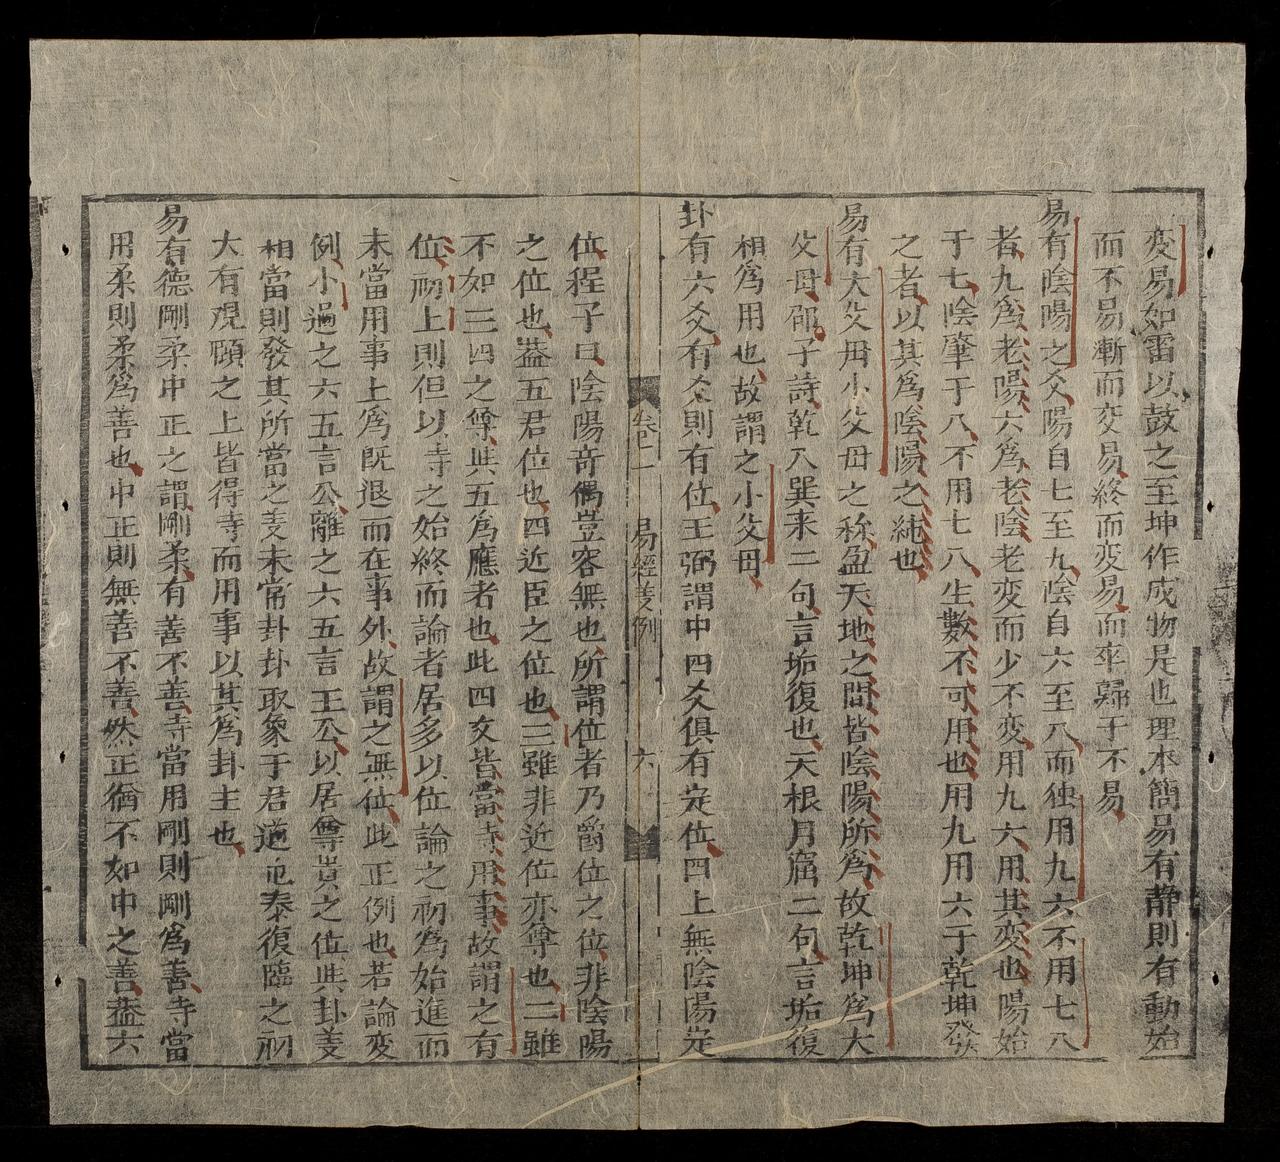 変易如雷以鼓之至坤作成物是也理本簡易有静則有動始
而不易漸而交易終而変易而卒歸于不易
易有陰陽之爻陽自七至九陰自六至八而独用九六不用七八
者九為老陽六為老陰老変而少不変用九六用其変也陽始
于七陰肇于八不用七八生數不可用也用九用六于乾坤發
之者以其為陰陽之純也
易有大父毋小父毋之称盈天地之間皆陰陽所為故乾坤為大
父母邵子詩乾入巽来二句言垢復也天根月窟二句言垢復
相為用也故謂之小父母
卦有六爻有爻則有位王弼謂中四爻俱有定位四上無陰陽定
卷一 易經義例 六
位程子曰陰陽奇偶豈容無也所謂位者乃爵位之位非陰陽
之位也盖五君位也四近臣之位也三雖非近位亦尊也二雖
不如三四之尊與五為應者也此四爻皆當寺用事故謂之有
位初上則但以寺之始終而論者居多以位論之初為始進而
未當用事上為既退而在事外故謂之無位此正例也若論変
例小過之六五言公離之六五言王公以居尊貴之位與卦義
相當則發其所當之義未常卦卦取象于君道也泰復臨之初
大有観頤之上皆得寺而用事以其為卦主也
易有德剛柔中正之謂剛柔有善不善寺當用剛則剛為善寺當
用柔則柔為善也中正則無善不善然正猶不如中之善盖六